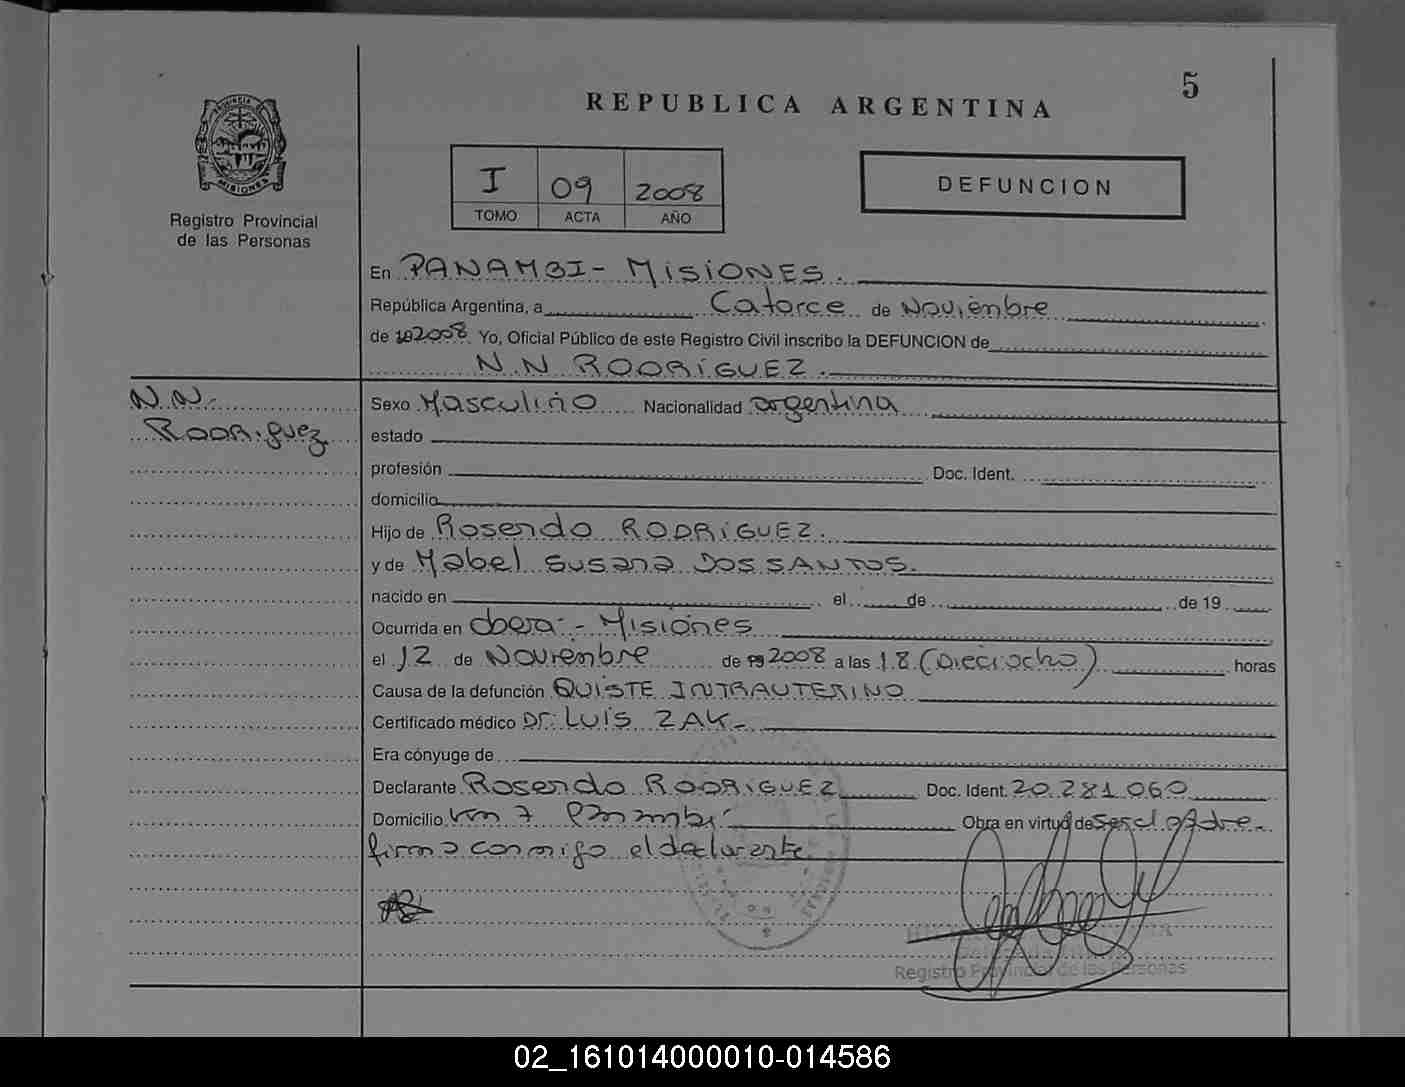 5
REPUBLICA ARGENTINA
PROVINCIA DE
MISIONES
Registro Provincial
de las Personas
I 09 2008
TOMO ACTA AÑO
DEFUNCION
En PANAMBI - MISIONES.
República Argentina, a Catorce de Noviembre
de 2008 Yo, Oficial Público de este Registro Civil inscribo la DEFUNCION de
N.N RODRIGUEZ.
N.N.
RODRiguez
Sexo Masculino Nacionalidad argentina
estado
profesión Doc. Ident.
domicilio
Hijo de Rosendo RODRIGUEZ.
y de Mabel Susana DOS SANTOS.
nacido en el de de 19
Ocurrida en Obera - Misiones
el 12 de Noviembre de 2008 a las 18 (Dieciocho) horas
Causa de la defunción QUISTE INTRAUTERINO
Certificado médico Dr. LUIS ZAK
Era cónyuge de
Declarante Rosendo RODRIGUEZ Doc. Ident. 20.281.060
Domicilio km 7 Panambi Obra en virtud de ser el padre.
firma conmigo el declarante
Registro Provincial de las Personas
02_161014000010-014586